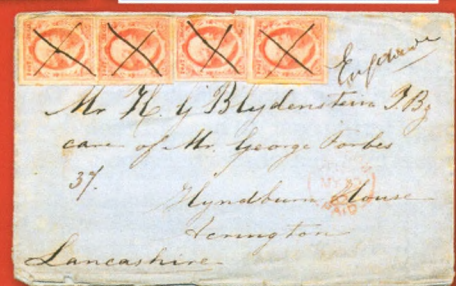 England
Mr H. G Blijdenstein J. Bz
care of Mr. George Forbes
37. Hyndburn House
Acrington
Lancashire
PAID